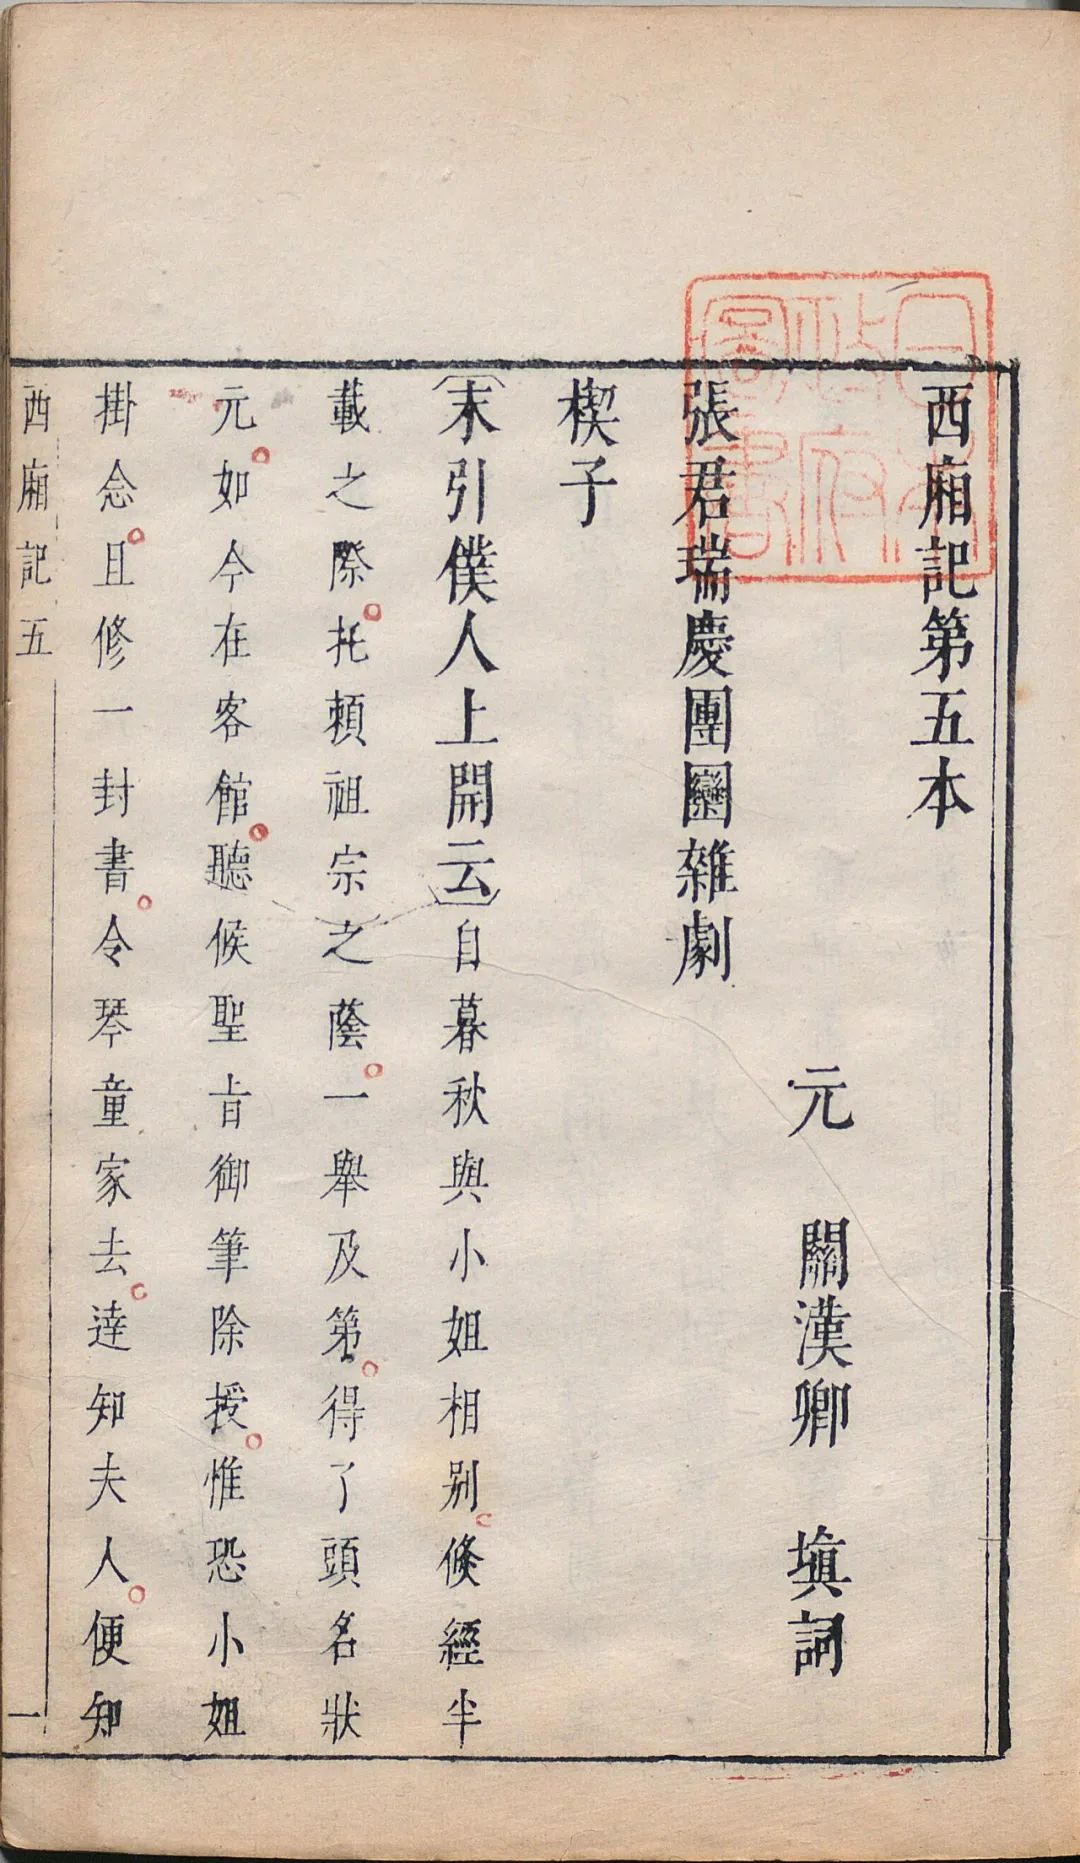 西廂記第五本
元 關漢卿 塡詞
張君瑞慶團圞雜劇
楔子
〔末引僕人上開云〕自暮秋與小姐相别倐經半
載之際托賴祖宗之蔭一舉及第得了頭名狀
元如今在客館聽候聖旨御筆除授惟恐小姐
掛念且修一封書令琴童家去達知夫人便知
西廂記五
一